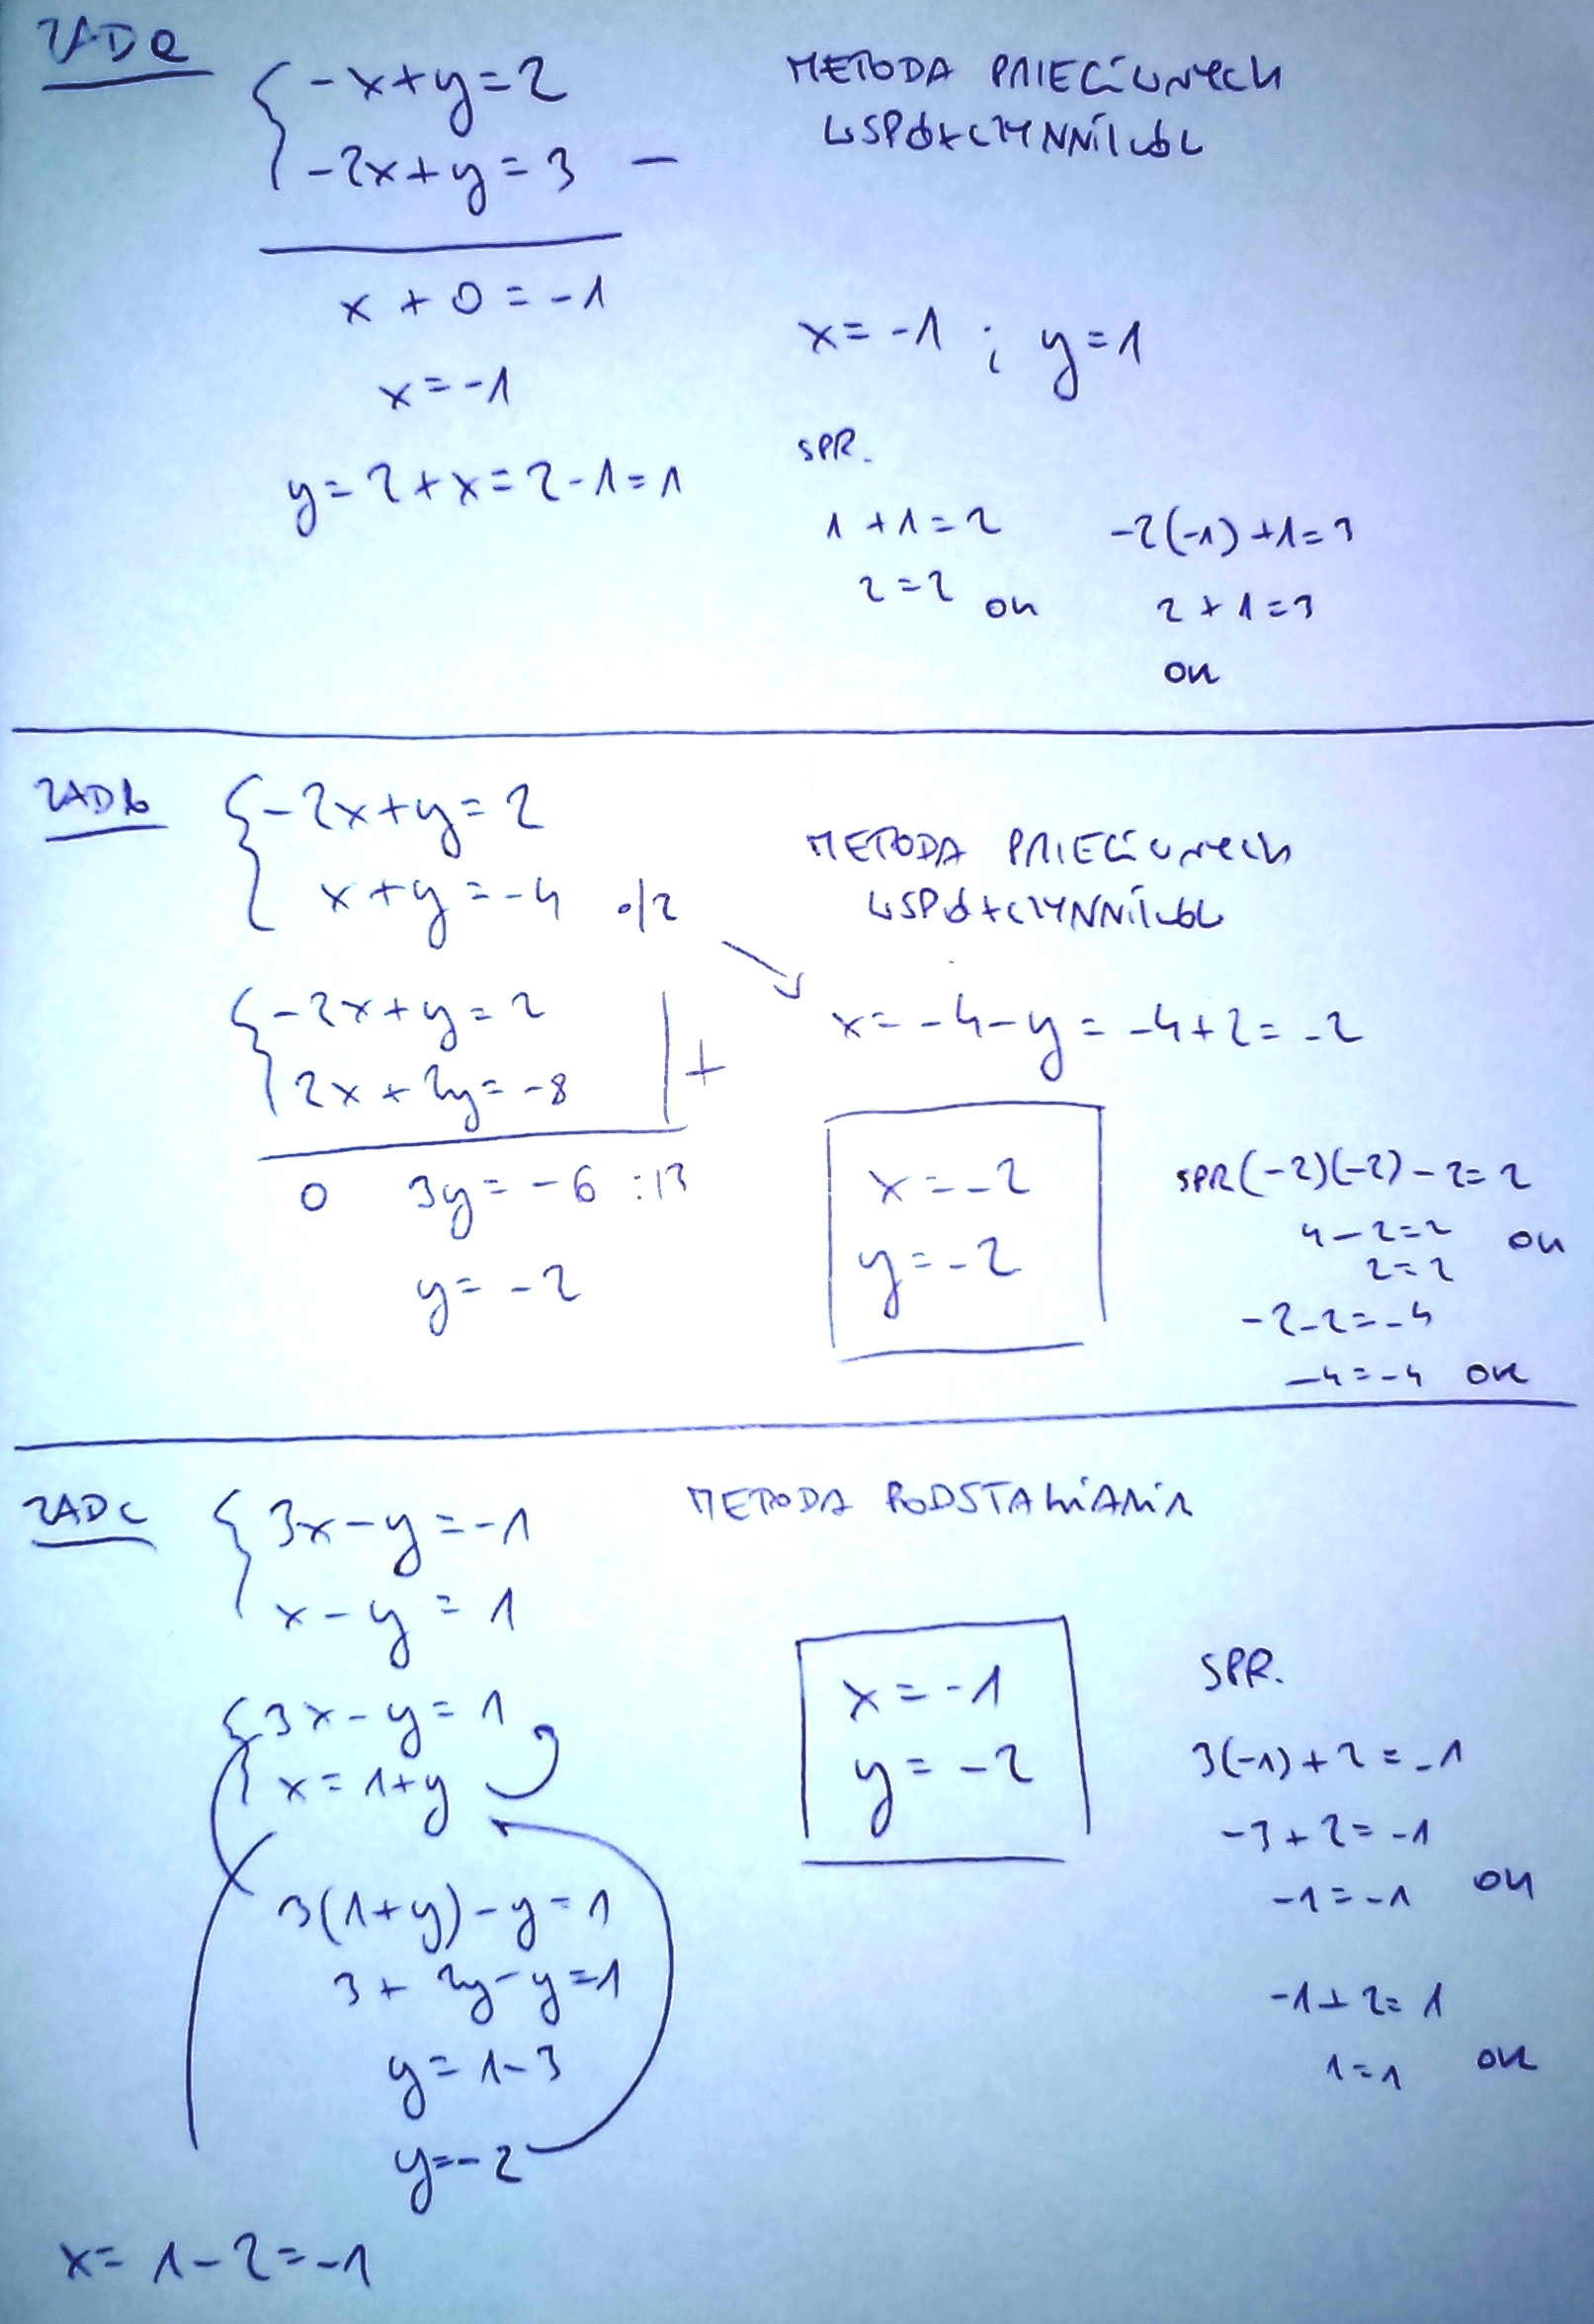 ZAD a
-x+y=2
-2x+y=3 -
METODA PRZECIWNYCH
WSPÓŁCZYNNIKÓW
x + 0 = -1
x = -1
y = 2 + x = 2 - 1 = 1
x = -1 i y = 1
SPR.
1 + 1 = 2
2 = 2 OK
-2(-1) + 1 = 3
2 + 1 = 3
OK
ZAD b
-2x+y=2
x+y=-4 ·/2
METODA PRZECIWNYCH
WSPÓŁCZYNNIKÓW
-2x+y=2
2x+2y=-8 | +
0 3y=-6 :/3
y=-2
x=-4-y=-4+2=-2
x=-2
y=-2
SPR (-2)(-2)-2=2
4-2=2 OK
2=2
-2-2=-4
-4=-4 OK
ZAD c
3x-y=-1
x-y=1
METODA PODSTAWIANIA
3x-y=1
x=1+y
3(1+y)-y=1
3+2y-y=1
y=1-3
y=-2
x=1-2=-1
x=-1
y=-2
SPR.
3(-1)+2=-1
-3+2=-1
-1=-1 OK
-1+2=1
1=1 OK